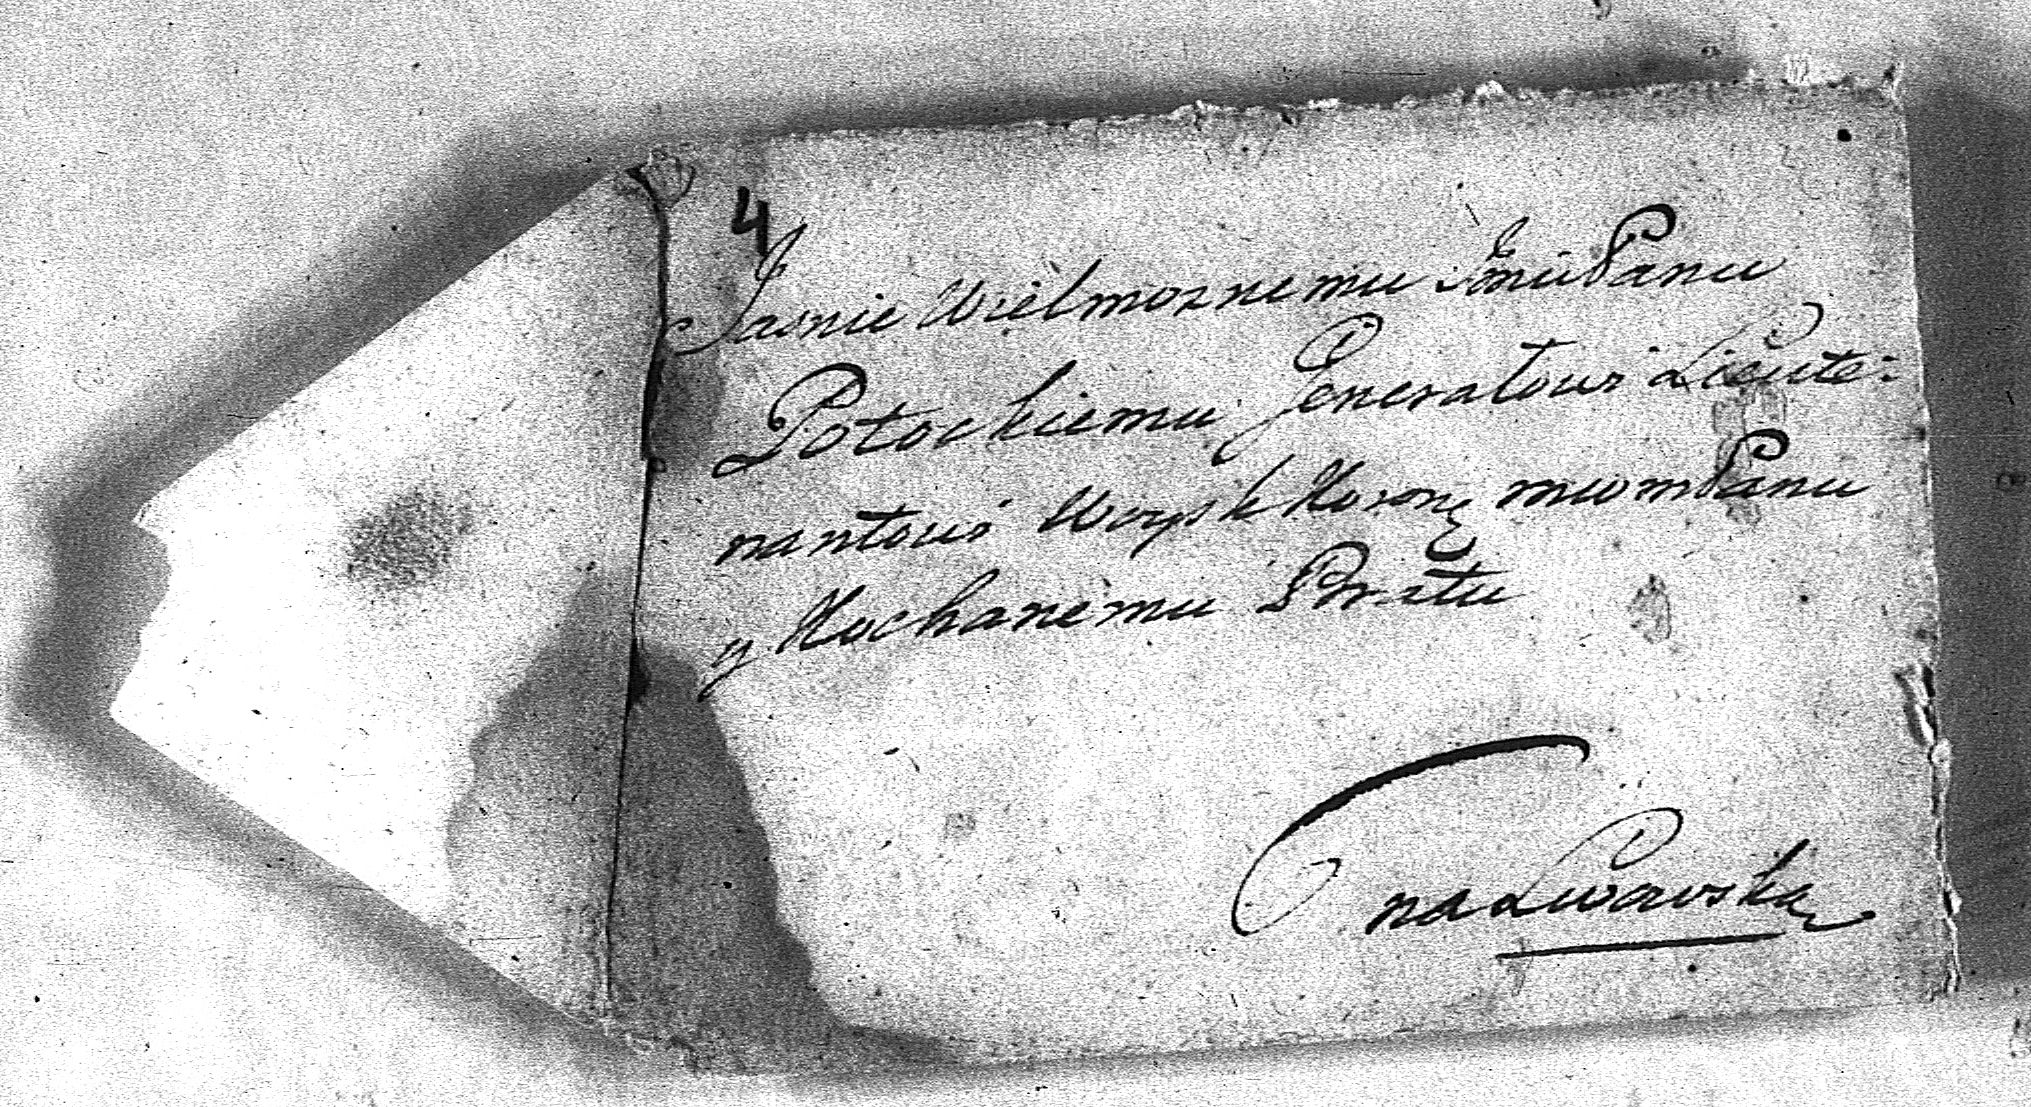 4
Jasnie Wielmoznemu JmuPanu
Potockiemu Generałowi Lieute:
nantowi Woysk Koronę mwmPanu
y Kochanemu Bratu
na Lwowska